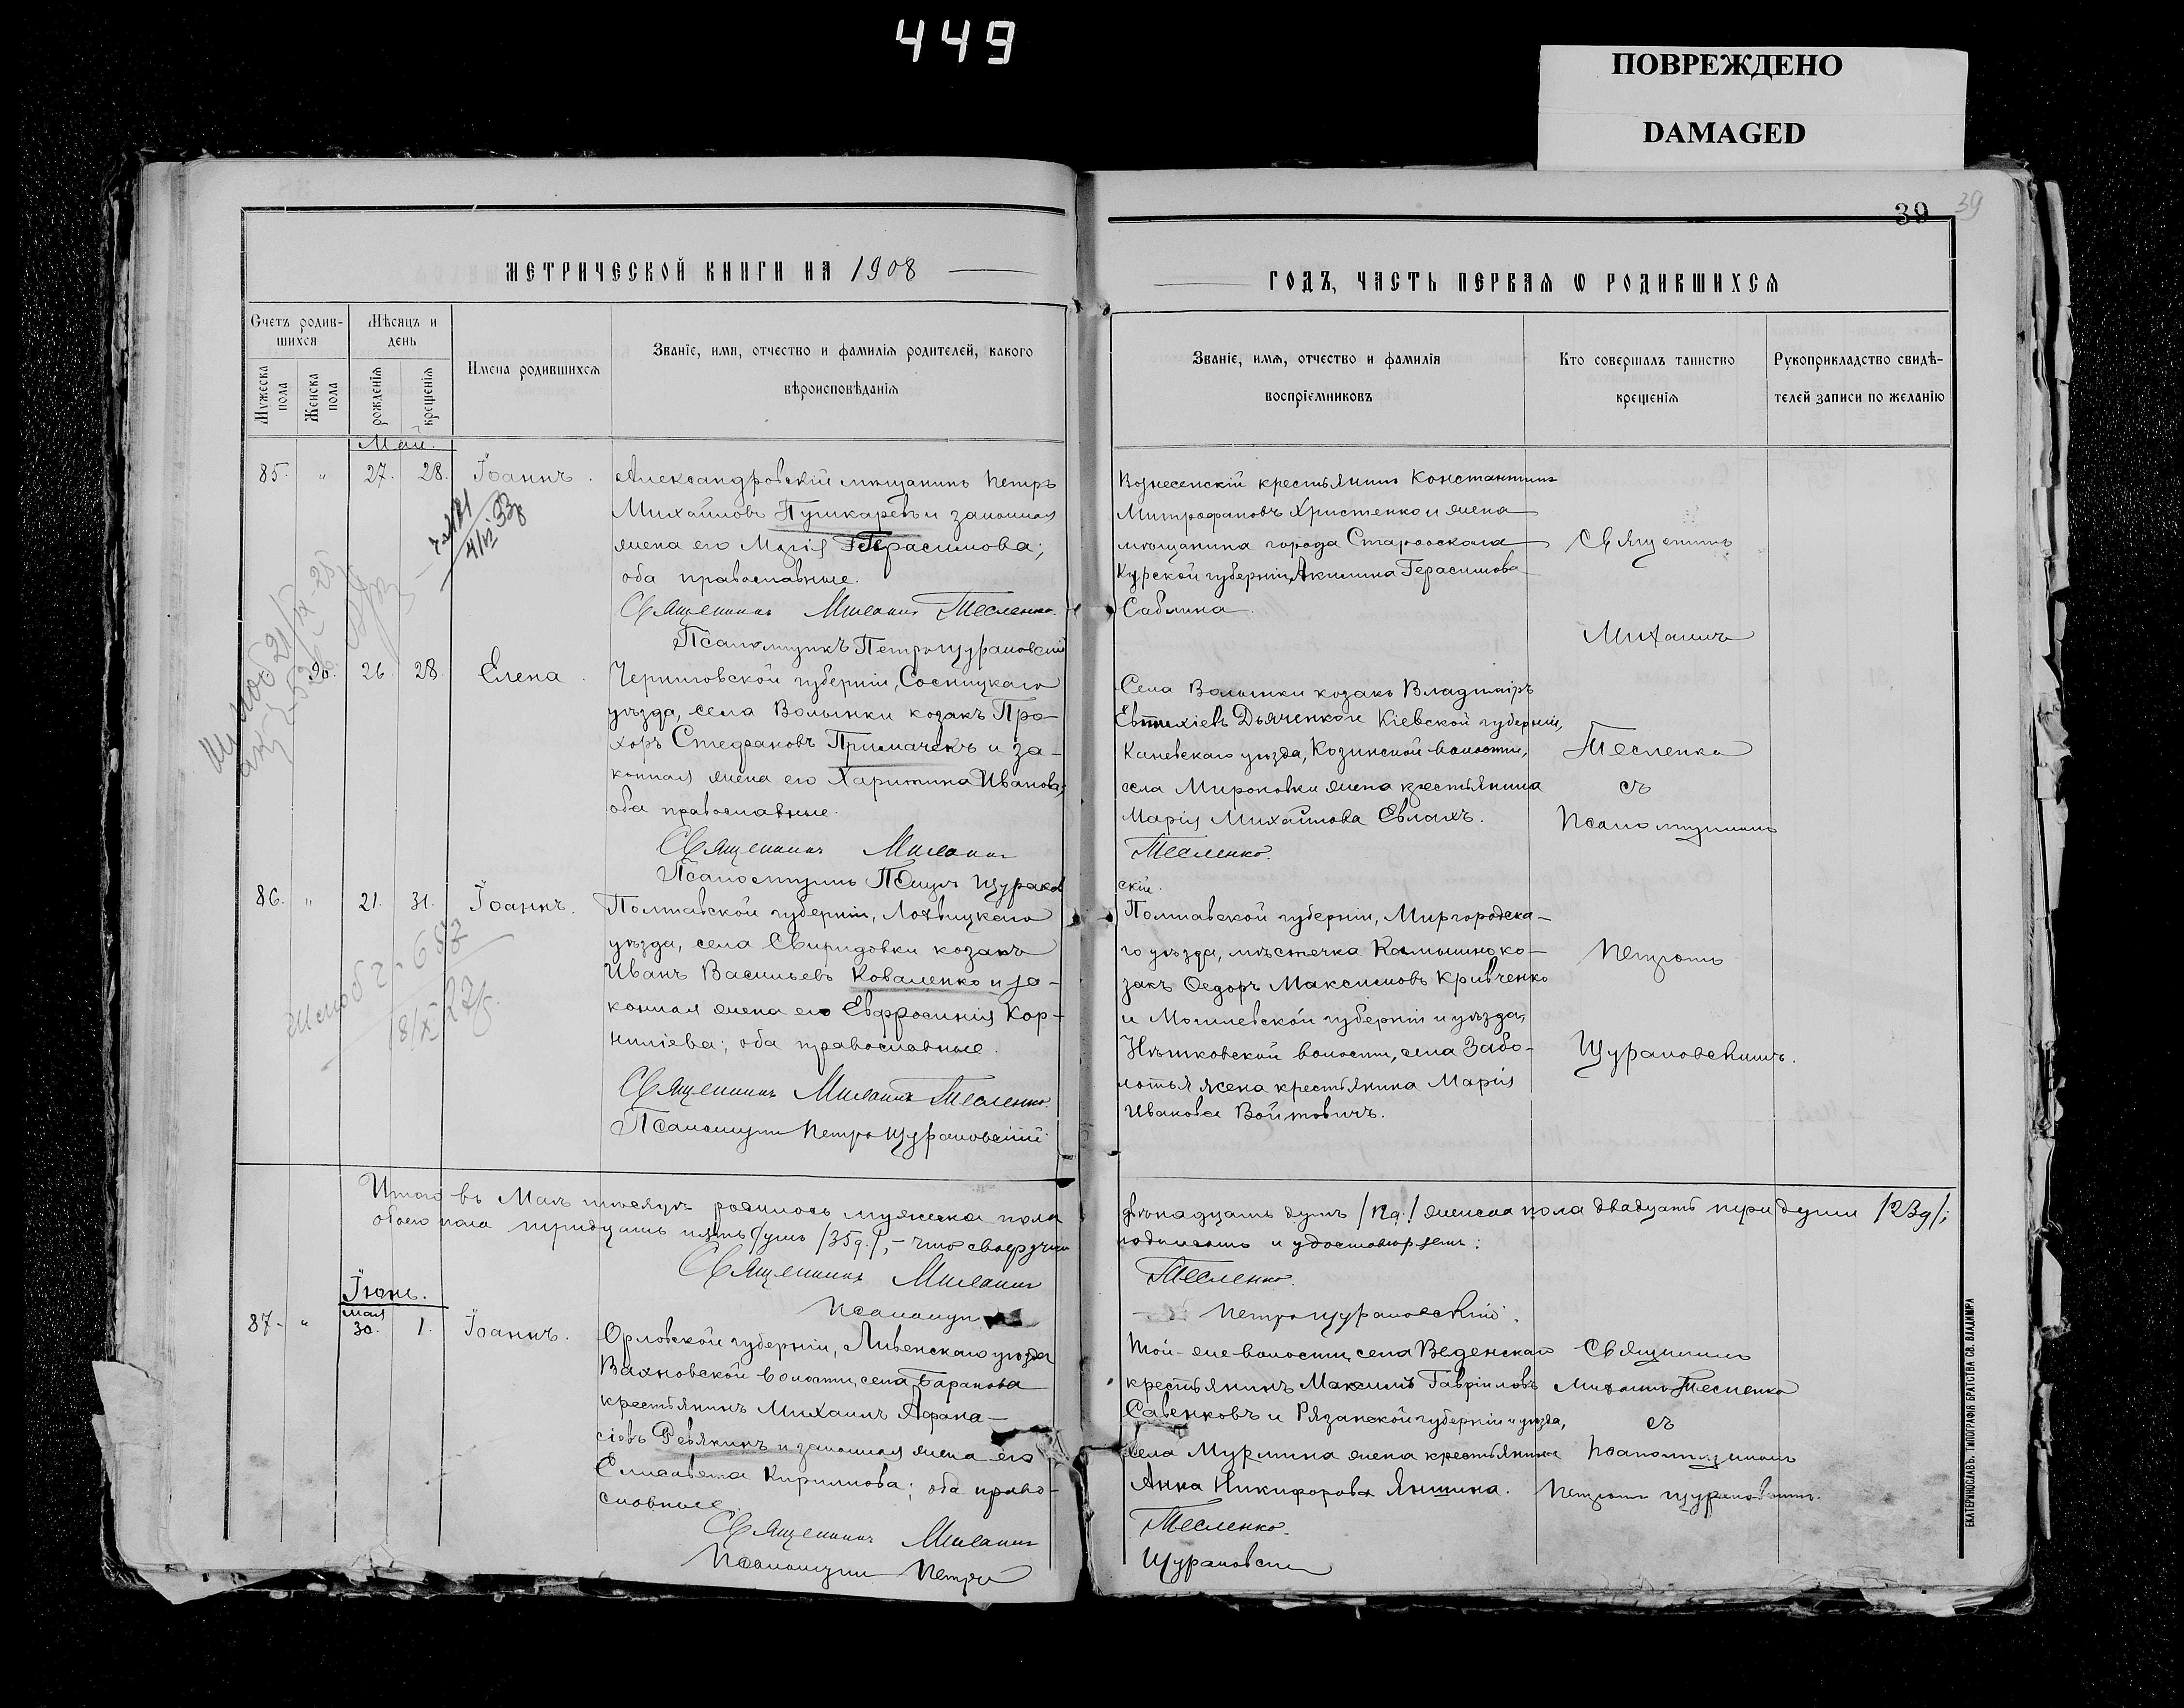 449
ПОВРЕЖДЕНО
DAMAGED
39
39
МЕТРИЧЕСКОЙ КНИГИ НА 1908
Счетъ родив-
шихся
Мужеска
пола
Женска
пола
Мѣсяцъ и
день
рожденія
крещенія
Имена родившихся
Званіе, имя, отчество и фамилія родителей, какого
вѣроисповѣданія
Май.
85. " 27. 28. Іоаннъ.
Александровскій мѣщанинъ Петръ
Михайловъ Пушкаревъ и законная
жена его Марія Герасимова;
оба православные.
Священникъ Михаилъ Тесленко.
Псаломщикъ Петръ Щурановскій
26. 28. Елена.
Черниговской губерніи, Сосницкаго
уѣзда, села Волынки козакъ Про-
хоръ Стефановъ Примачекъ и за-
конная жена его Харитина Иванова;
оба православные.
Священникъ Михаилъ
Псаломщикъ Петръ Щуранов
86. " 21. 31. Іоаннъ.
Полтавской губерніи, Лохвицкаго
уѣзда, села Свиридовки козакъ
Иванъ Васильевъ Коваленко и за-
конная жена его Евфросинія Кор-
ниліева; оба православные.
Священникъ Михаилъ Тесленко.
Псаломщикъ Петръ Щурановскій
Итого въ Маѣ мѣсяцѣ родилось мужеска пола
обоего пола тридцать пять душъ /35д./, - что своеручнымъ
Священникъ Михаилъ
Псаломщ
Іюнь.
мая
87. " 30. 1. Іоаннъ.
Орловской губерніи, Ливенскаго уѣзда
Вахновской волости, села Баранова
крестьянинъ Михаилъ Афана-
сіевъ Ревякинъ и законная жена его
Елисавета Кириллова; оба право-
славные.
Священникъ Михаилъ
Псаломщикъ Петръ
ГОДЪ, ЧАСТЬ ПЕРВАЯ Ѡ РОДИВШИХСЯ
Званіе, имя, отчество и фамилія
воспріемниковъ
Кто совершалъ таинство
крещенія
Рукоприкладство свидѣ-
телей записи по желанію
Вознесенскій крестьянинъ Константинъ
Митрофановъ Христенко и жена
мѣщанина города Староскола
Курской губерніи, Акилина Герасимова
Саблина.
Села Волынки козакъ Владиміръ
Евтихіевъ Дьяченко и Кіевской губерніи,
Каневскаго уѣзда, Козинской волости,
села Мироновки жена крестьянина
Марія Михайлова Евлахъ.
Тесленко.
скій.
Полтавской губерніи, Миргородска-
го уѣзда, мѣстечка Камышно ко-
закъ Ѳедоръ Максимовъ Кривченко
и Могилевской губерніи и уѣзда,
волости, села Забо-
лотья жена крестьянина Марія
Иванова Войтовичъ.
Священникъ
Михаилъ
Тесленко
съ
Псаломщикомъ
Петромъ
Щурановскимъ.
двѣнадцать душъ /12д./ женска пола двадцать три души /23д/;
подписомъ и удостовѣряемъ:
Тесленко.
Петръ Щурановскій.
Той-же волости, села Веденскаго
крестьянинъ Максимъ Гавріиловъ
Савенковъ и Рязанской губерніи и уѣзда,
села Мурмина жена крестьянина
Анна Никифорова Яншина.
Тесленко.
Щурановскій
Священникъ
Михаилъ Тесленко
съ
Псаломщикомъ
Петромъ Щурановскимъ.
ЕКАТЕРИНОСЛАВЪ. ТИПОГРАФІЯ БРАТСТВА СВ. ВЛАДИМІРА